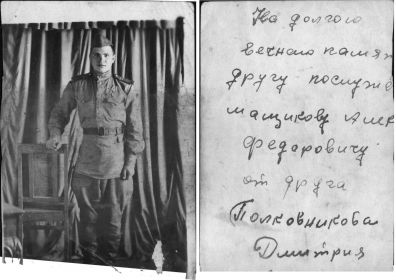 На долгою
вечною памят
другу послужб
мащикову Алек
федоровичу
от друга
Полковникова
Дмитрия